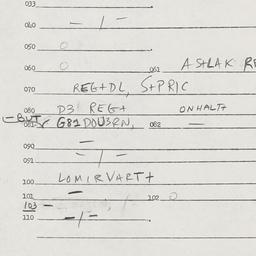 033
040 — / —
050 O
060 O 061 ASTLAK RE
070 REG+DL, S+PRIC
080 D3 REG+ ONHALT+
—BUT
081 G81DOU3RN, 082 —
090 —
091 — / —
100 LOMIRVART+
101 — 102 O
103 —
110 — / —